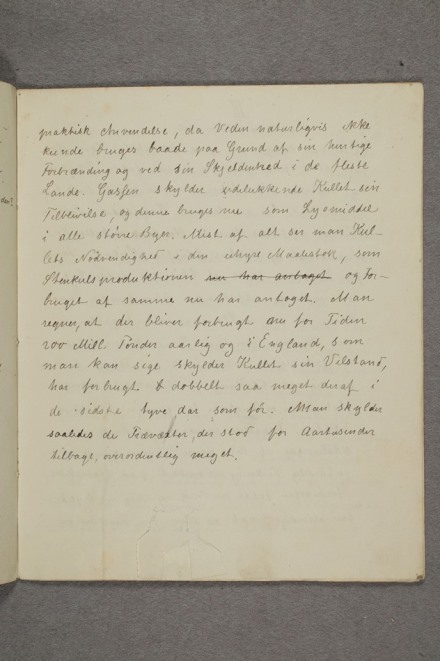 praktisk Anvendelse, da Veden naturligvis ikke
kunde bruges baade paa Grund af sin hurtige
Forbrænding og ved sin Skjeldenhed i de fleste
Lande. Gassen skylder udelukkende Kullet sin
Tilblivelse, og denne bruges nu som Lysmiddel
i alle større Byer. Mest af alt ser man Kul-
lets Nødvendighed i den uhyre Maalestok, som
Stenkulsproduktionen nu har antaget og For-
bruget af samme nu har antaget. Man
regner, at der bliver forbrugt nu for Tiden
200 Mill. Tønder aarlig og i England, som
man kan sige skylder Kullet sin Velstand,
har forbrugt dobbelt saa meget deraf i
de sidste tyve Aar som før. Man skylder
saaledes de Trævæxter, der stod for Aartusender
tilbage, overordentlig meget.